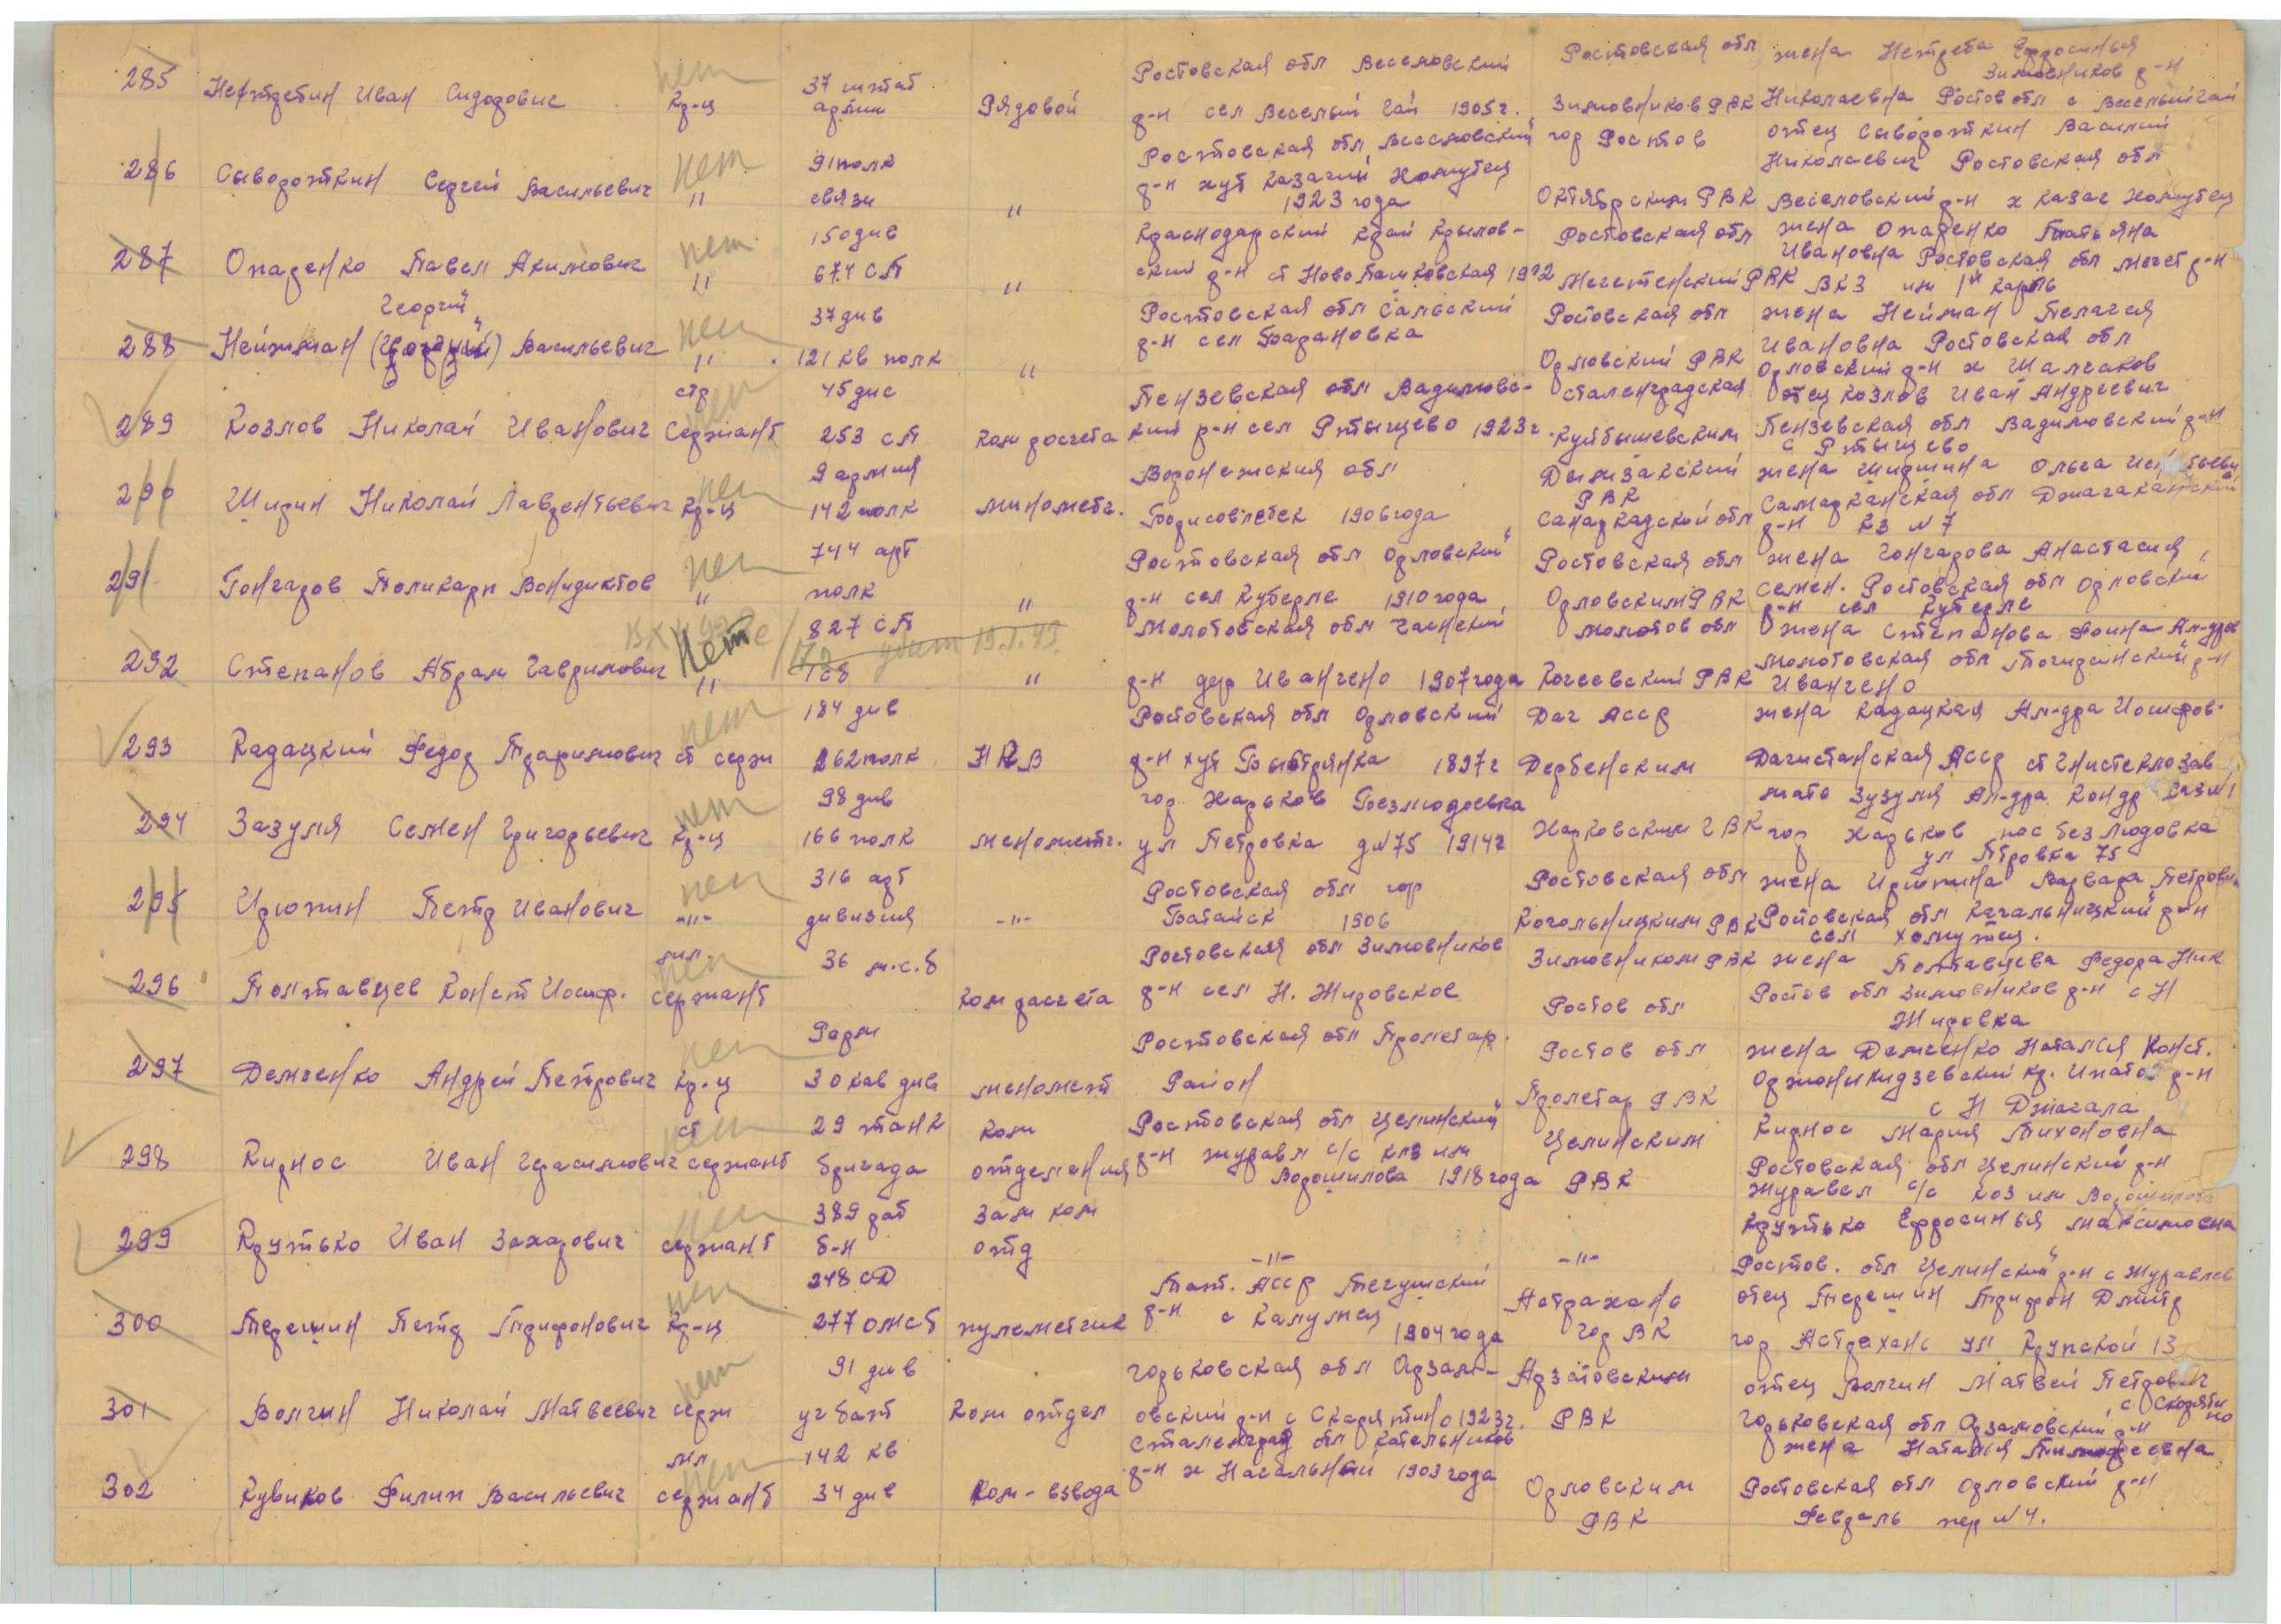 285 Нетребин Иван Сидорович нет Кр-ц 37 штаб армии Рядовой Ростовская обл Веселовский р-н сел Веселый Гай 1905 г. Ростовская обл Зимовников РВК жена Нетреба Ефросинья Николаевна Зимовников р-н Ростов обл с Веселый Гай
286 Сывороткин Сергей Васильевич нет " 91 полк связи " Ростовская обл Веселовский р-н хут Казачий Хомутец 1923 года гор Ростов Октябрским РВК отец Сывороткин Василий Николаевич Ростовская обл Веселовский р-н х Казач Хомутец
287 Опаренко Павел Акимович нет " 150 див 674 СП " Краснодарский край Крылов-ский р-н ст Ново Пашковская 1912 Ростовская обл Мечетенский РВК жена Опаренко Татьяна Ивановна Ростовская обл Мечет р-н ВКЗ им
288 Нейжман Георгий Васильевич нет " 37 див 121 кв полк " Ростовская обл Сальский р-н сел Барановка Ростовская обл Орловский РВК жена Нейман Пелагея Ивановна Ростовская обл Орловский р-н х Шалчаков
289 Козлов Николай Иванович нет стр Сержант 45 дис 253 СП Ком росчета Пензевская обл Вадимовс-кий р-н сел Ртыщево 1923 г. Сталенградская Куйбышевским отец Козлов Иван Андреевич Пензевская обл Вадимовский р-н с Ртыщево
290 Ширин Николай Лаврентьевич нет Кр-ц 9 армия 142 полк минометч. Воронежския обл Борисовлебек 1906 года РВК Самаркадской обл жена Ольга Самарканская обл р-н КЗ №7
291 Гончаров Поликарп Венидиктов нет " 744 арт полк " Ростовская обл Орловский р-н сел Куберле 1910 года Ростовская обл Орловским РВК жена Гончарова Анастасия Семен. Ростовская обл Орловский р-н сел Куберле
292 Степанов Абрам Гаврилович нет " 827 СП убит 19.1.43. " Молотовская обл р-н дер Иванчено 1907 года Молотов обл Кочеевский РВК жена Степанова Ал-дров Молотовская обл р-н Иванчено
293 Кадацкий Федор нет ст серж 184 див 262 полк НКВ Ростовская обл Орловский р-н хут Быстрянка 1897 г Даг АССР Дербенским жена Кадацкая Ал-дра Иосифов. Дагистанская АССР ст
294 Зазуля Семен Григорьевич нет Кр-ц 98 див 166 полк менометч. гор Харьков Безлюдовка ул Петровка д №75 1914 г Харковским ГВК мать Зузуля Ал-дра Кондр гор Харьков пос Безлюдовка ул Птровка 75
295 Ирюпин Петр Иванович нет -"- 316 арт дивизия -"- Ростовская обл гор Батайск 1906 Ростовская обл Когольницким РВК жена Ирюпина Варвара Петровн Ростовская обл Качальницкий р-н сел Хомутец.
296 Полтавцев Конст Иосиф. нет мл. сержант 36 м.с.б Ком расчета Ростовская обл Зимовников р-н сел Н. Жировское Зимовником РВК Ростов обл жена Полтавцева Федора Ник Ростов обл Зимовников р-н с Н Жировка
297 Демченко Андрей Петрович нет Кр-ц 9 арм 30 кав див менометч Ростовская обл Пролетар. Район Ростов обл Пролетар РВК жена Демченко Натался Конст. Оржоникидзевский кр. Ипатов р-н с Н Джагала
298 Кирнос Иван Герасимович нет ст сержант 29 танк бригада ком отделения Ростовская обл Целинский р-н журавл с/с клз им Ворошилова 1918 года Целинским РВК Кирнос Мария Тихоновна Ростовская обл Целинский р-н Журавел с/с коз им Ворошилова
299 Крутько Иван Захарович нет сержант 389 раб б-н Зам ком отд -"- -"- Крутько Ефросинья Максимовна Ростов. обл Целинский р-н с Журавлев
300 Терешин Петр Трифонович нет Кр-ц 248 СД 277 ОМСБ пулеметчик Тат. АССР р-н с 1904 года Астрахань гор ВК отец Терешин Трифон Дмитр гор Астрахань ул Крупской 13
301 Волгин Николай Матвеевич нет серж 91 див уч бат Ком отдел Горьковская обл Арзам-овский р-н с Скарятино 1923 г. Арзотовским РВК отец Волгин Матвей Петрович Горьковская обл Орзамовский р-н с Скорятино
302 Кувиков Филип Васильевич нет мл сержант 142 кв 34 див Ком-взвода Сталенград обл Котельников р-н х Нагальный 1903 года Орловским РВК жена Наталья Тимофеевна Ростовская обл Орловский р-н Февраль пер №4.